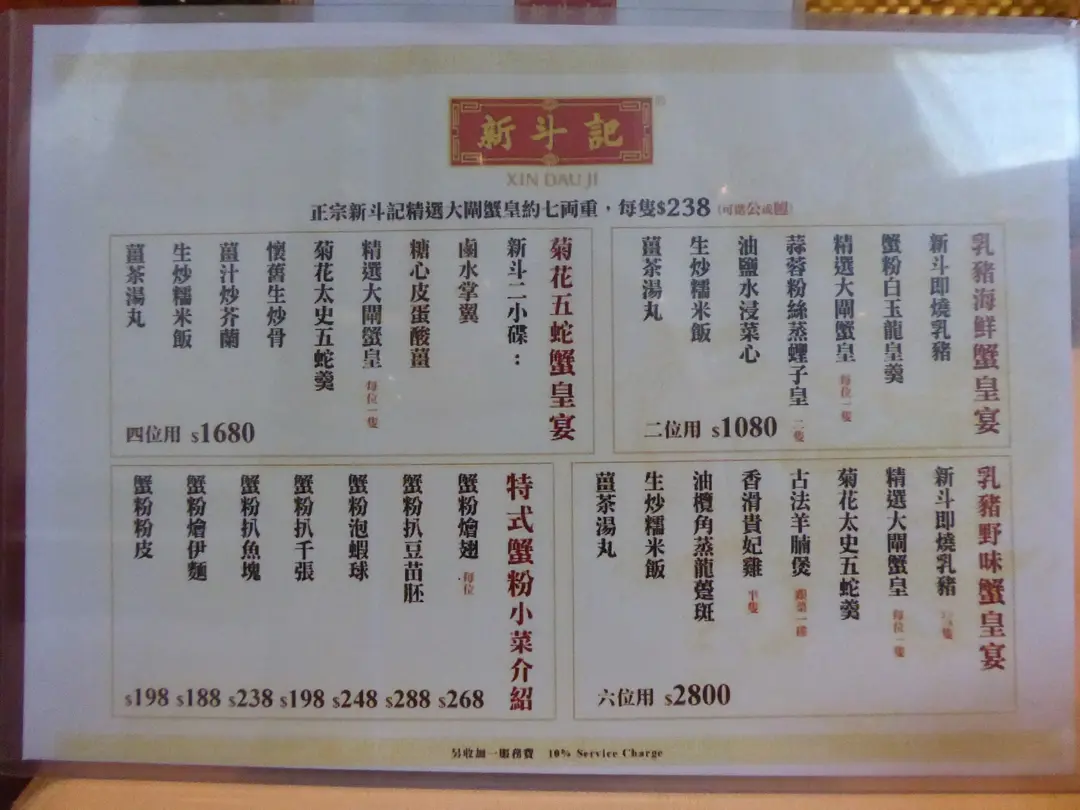 新斗記
XIN DAU JI
正宗新斗記精選大閘蟹皇約七両重，每隻$238 (可選公或乸)
乳豬海鮮蟹皇宴
新斗即燒乳豬
蟹粉白玉龍皇羹
精選大閘蟹皇 每位一隻
蒜蓉粉絲蒸蟶子皇 二隻
油鹽水浸菜心
生炒糯米飯
薑茶湯丸
二位用 $1080
菊花五蛇蟹皇宴
新斗二小碟：
鹵水掌翼
糖心皮蛋酸薑
精選大閘蟹皇 每位一隻
菊花太史五蛇羹
懷舊生炒骨
薑汁炒芥蘭
生炒糯米飯
薑茶湯丸
四位用 $1680
乳豬野味蟹皇宴
新斗即燒乳豬
精選大閘蟹皇 每位一隻
菊花太史五蛇羹
古法羊腩煲 跟菜一碟
香滑貴妃雞 半隻
油欖角蒸龍躉斑
生炒糯米飯
薑茶湯丸
六位用 $2800
特式蟹粉小菜介紹
蟹粉燴翅 每位 $268
蟹粉扒豆苗胚 $288
蟹粉泡蝦球 $248
蟹粉扒千張 $198
蟹粉扒魚塊 $238
蟹粉燴伊麵 $188
蟹粉粉皮 $198
另收加一服務費 10% Service Charge